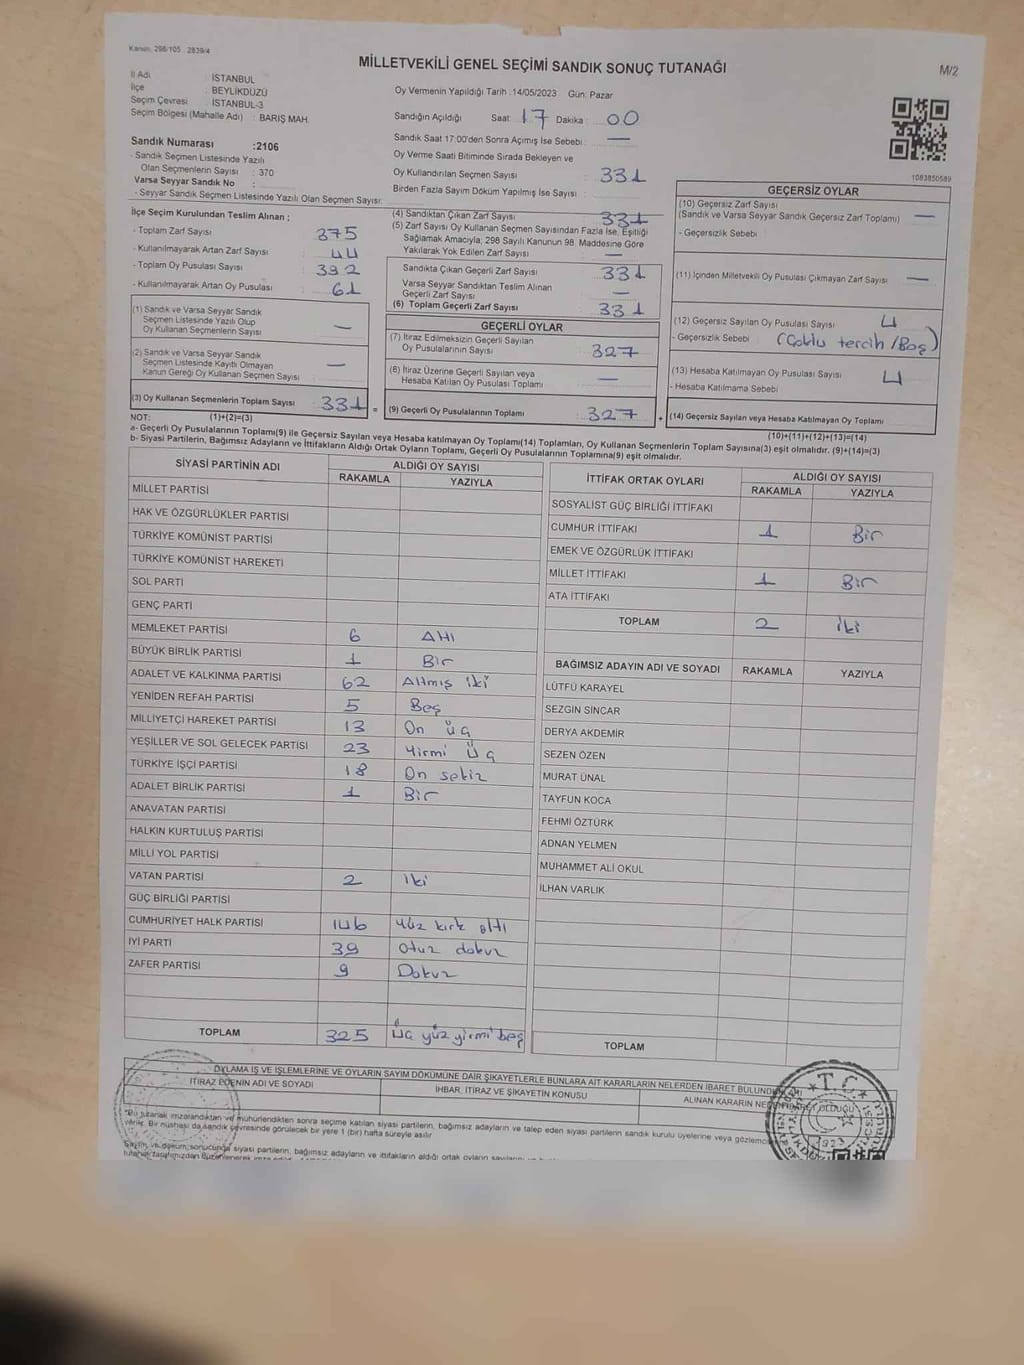 Kanun, 298/105 2839/4
MİLLETVEKİLİ GENEL SEÇİMİ SANDIK SONUÇ TUTANAĞI
M/2
İl Adı İSTANBUL
İlçe BEYLİKDÜZÜ
Seçim Çevresi İSTANBUL-3
Seçim Bölgesi (Mahalle Adı) : BARIŞ MAH.
Sandık Numarası :2106
- Sandık Seçmen Listesinde Yazılı
Olan Seçmenlerin Sayısı : 370
Varsa Seyyar Sandık No :
- Seyyar Sandık Seçmen Listesinde Yazılı Olan Seçmen Sayısı:
Oy Vermenin Yapıldığı Tarih :14/05/2023 Gün: Pazar
Sandığın Açıldığı Saat : 17 Dakika : 00
Sandık Saat 17:00'den Sonra Açımış İse Sebebi : —
Oy Verme Saati Bitiminde Sırada Bekleyen ve
Oy Kullandırılan Seçmen Sayısı 331
Birden Fazla Sayım Döküm Yapılmış İse Sayısı :
1083850589
İlçe Seçim Kurulundan Teslim Alınan ;
- Toplam Zarf Sayısı : 375
- Kullanılmayarak Artan Zarf Sayısı : 44
- Toplam Oy Pusulası Sayısı : 392
- Kullanılmayarak Artan Oy Pusulası : 61
(1) Sandık ve Varsa Seyyar Sandık
Seçmen Listesinde Yazılı Olup
Oy Kullanan Seçmenlerin Sayısı —
(2) Sandık ve Varsa Seyyar Sandık
Seçmen Listesinde Kayıtlı Olmayan
Kanun Gereği Oy Kullanan Seçmen Sayısı : —
(3) Oy Kullanan Seçmenlerin Toplam Sayısı 331 =
(1)+(2)=(3)
(4) Sandıktan Çıkan Zarf Sayısı 331
(5) Zarf Sayısı Oy Kullanan Seçmen Sayısından Fazla İse, Eşitliği
Sağlamak Amacıyla; 298 Sayılı Kanunun 98. Maddesine Göre
Yakılarak Yok Edilen Zarf Sayısı : —
Sandıkta Çıkan Geçerli Zarf Sayısı 331
Varsa Seyyar Sandıktan Teslim Alınan
Geçerli Zarf Sayısı —
(6) Toplam Geçerli Zarf Sayısı 331
GEÇERLİ OYLAR
(7) İtiraz Edilmeksizin Geçerli Sayılan
Oy Pusulalarının Sayısı 327
(8) İtiraz Üzerine Geçerli Sayılan veya
Hesaba Katılan Oy Pusulası Toplamı —
(9) Geçerli Oy Pusulalarının Toplamı 327 +
GEÇERSİZ OYLAR
(10) Geçersiz Zarf Sayısı
(Sandık ve Varsa Seyyar Sandık Geçersiz Zarf Toplamı) —
- Geçersizlik Sebebi
(11) İçinden Milletvekili Oy Pusulası Çıkmayan Zarf Sayısı —
(12) Geçersiz Sayılan Oy Pusulası Sayısı 4
- Geçersizlik Sebebi : (Çoklu tercih /Boş)
(13) Hesaba Katılmayan Oy Pusulası Sayısı 4
- Hesaba Katılmama Sebebi
(14) Geçersiz Sayılan veya Hesaba Katılmayan Oy Toplamı
(10)+(11)+(12)+(13)=(14)
NOT:
a- Geçerli Oy Pusulalarının Toplamı(9) ile Geçersiz Sayılan veya Hesaba katılmayan Oy Toplamı(14) Toplamları, Oy Kullanan Seçmenlerin Toplam Sayısına(3) eşit olmalıdır. (9)+(14)=(3)
b- Siyasi Partilerin, Bağımsız Adayların ve İttifakların Aldığı Ortak Oyların Toplamı, Geçerli Oy Pusulalarının Toplamına(9) eşit olmalıdır.
SİYASİ PARTİNİN ADI ALDIĞI OY SAYISI
RAKAMLA YAZIYLA
MİLLET PARTİSİ
HAK VE ÖZGÜRLÜKLER PARTİSİ
TÜRKİYE KOMÜNİST PARTİSİ
TÜRKİYE KOMÜNİST HAREKETİ
SOL PARTİ
GENÇ PARTİ
MEMLEKET PARTİSİ 6 Altı
BÜYÜK BİRLİK PARTİSİ 1 Bir
ADALET VE KALKINMA PARTİSİ 62 Altmış iki
YENİDEN REFAH PARTİSİ 5 Beş
MİLLİYETÇİ HAREKET PARTİSİ 13 On üç
YEŞİLLER VE SOL GELECEK PARTİSİ 23 Yirmi üç
TÜRKİYE İŞÇİ PARTİSİ 18 On sekiz
ADALET BİRLİK PARTİSİ 1 Bir
ANAVATAN PARTİSİ
HALKIN KURTULUŞ PARTİSİ
MİLLİ YOL PARTİSİ
VATAN PARTİSİ 2 İki
GÜÇ BİRLİĞİ PARTİSİ
CUMHURİYET HALK PARTİSİ 146 Yüz kırk altı
İYİ PARTİ 39 Otuz dokuz
ZAFER PARTİSİ 9 Dokuz
TOPLAM 325 Üç yüz yirmi beş
İTTİFAK ORTAK OYLARI ALDIĞI OY SAYISI
RAKAMLA YAZIYLA
SOSYALİST GÜÇ BİRLİĞİ İTTİFAKI
CUMHUR İTTİFAKI 1 Bir
EMEK VE ÖZGÜRLÜK İTTİFAKI
MİLLET İTTİFAKI 1 Bir
ATA İTTİFAKI
TOPLAM 2 İki
BAĞIMSIZ ADAYIN ADI VE SOYADI RAKAMLA YAZIYLA
LÜTFÜ KARAYEL
SEZGİN SİNCAR
DERYA AKDEMİR
SEZEN ÖZEN
MURAT ÜNAL
TAYFUN KOCA
FEHMİ ÖZTÜRK
ADNAN YELMEN
MUHAMMET ALİ OKUL
İLHAN VARLIK
TOPLAM
OYLAMA İŞ VE İŞLEMLERİNE VE OYLARIN SAYIM DÖKÜMÜNE DAİR ŞİKAYETLERLE BUNLARA AİT KARARLARIN NELERDEN İBARET BULUNDUĞU
İTİRAZ EDENİN ADI VE SOYADI İHBAR, İTİRAZ VE ŞİKAYETİN KONUSU ALINAN KARARIN NEDEN İBARET OLDUĞU
*Bu tutanak imzalandıktan ve mühürlendikten sonra seçime katılan siyasi partilerin, bağımsız adayların ve talep eden siyasi partilerin sandık kurulu üyelerine veya
verilir. Bir nüshası da sandık çevresinde görülecek bir yere 1 (bir) hafta süreyle asılır
Sayım ve döküm sonucunda siyasi partilerin, bağımsız adayların ve ittifakların aldığı ortak oyların sayılarını
T.C
1923